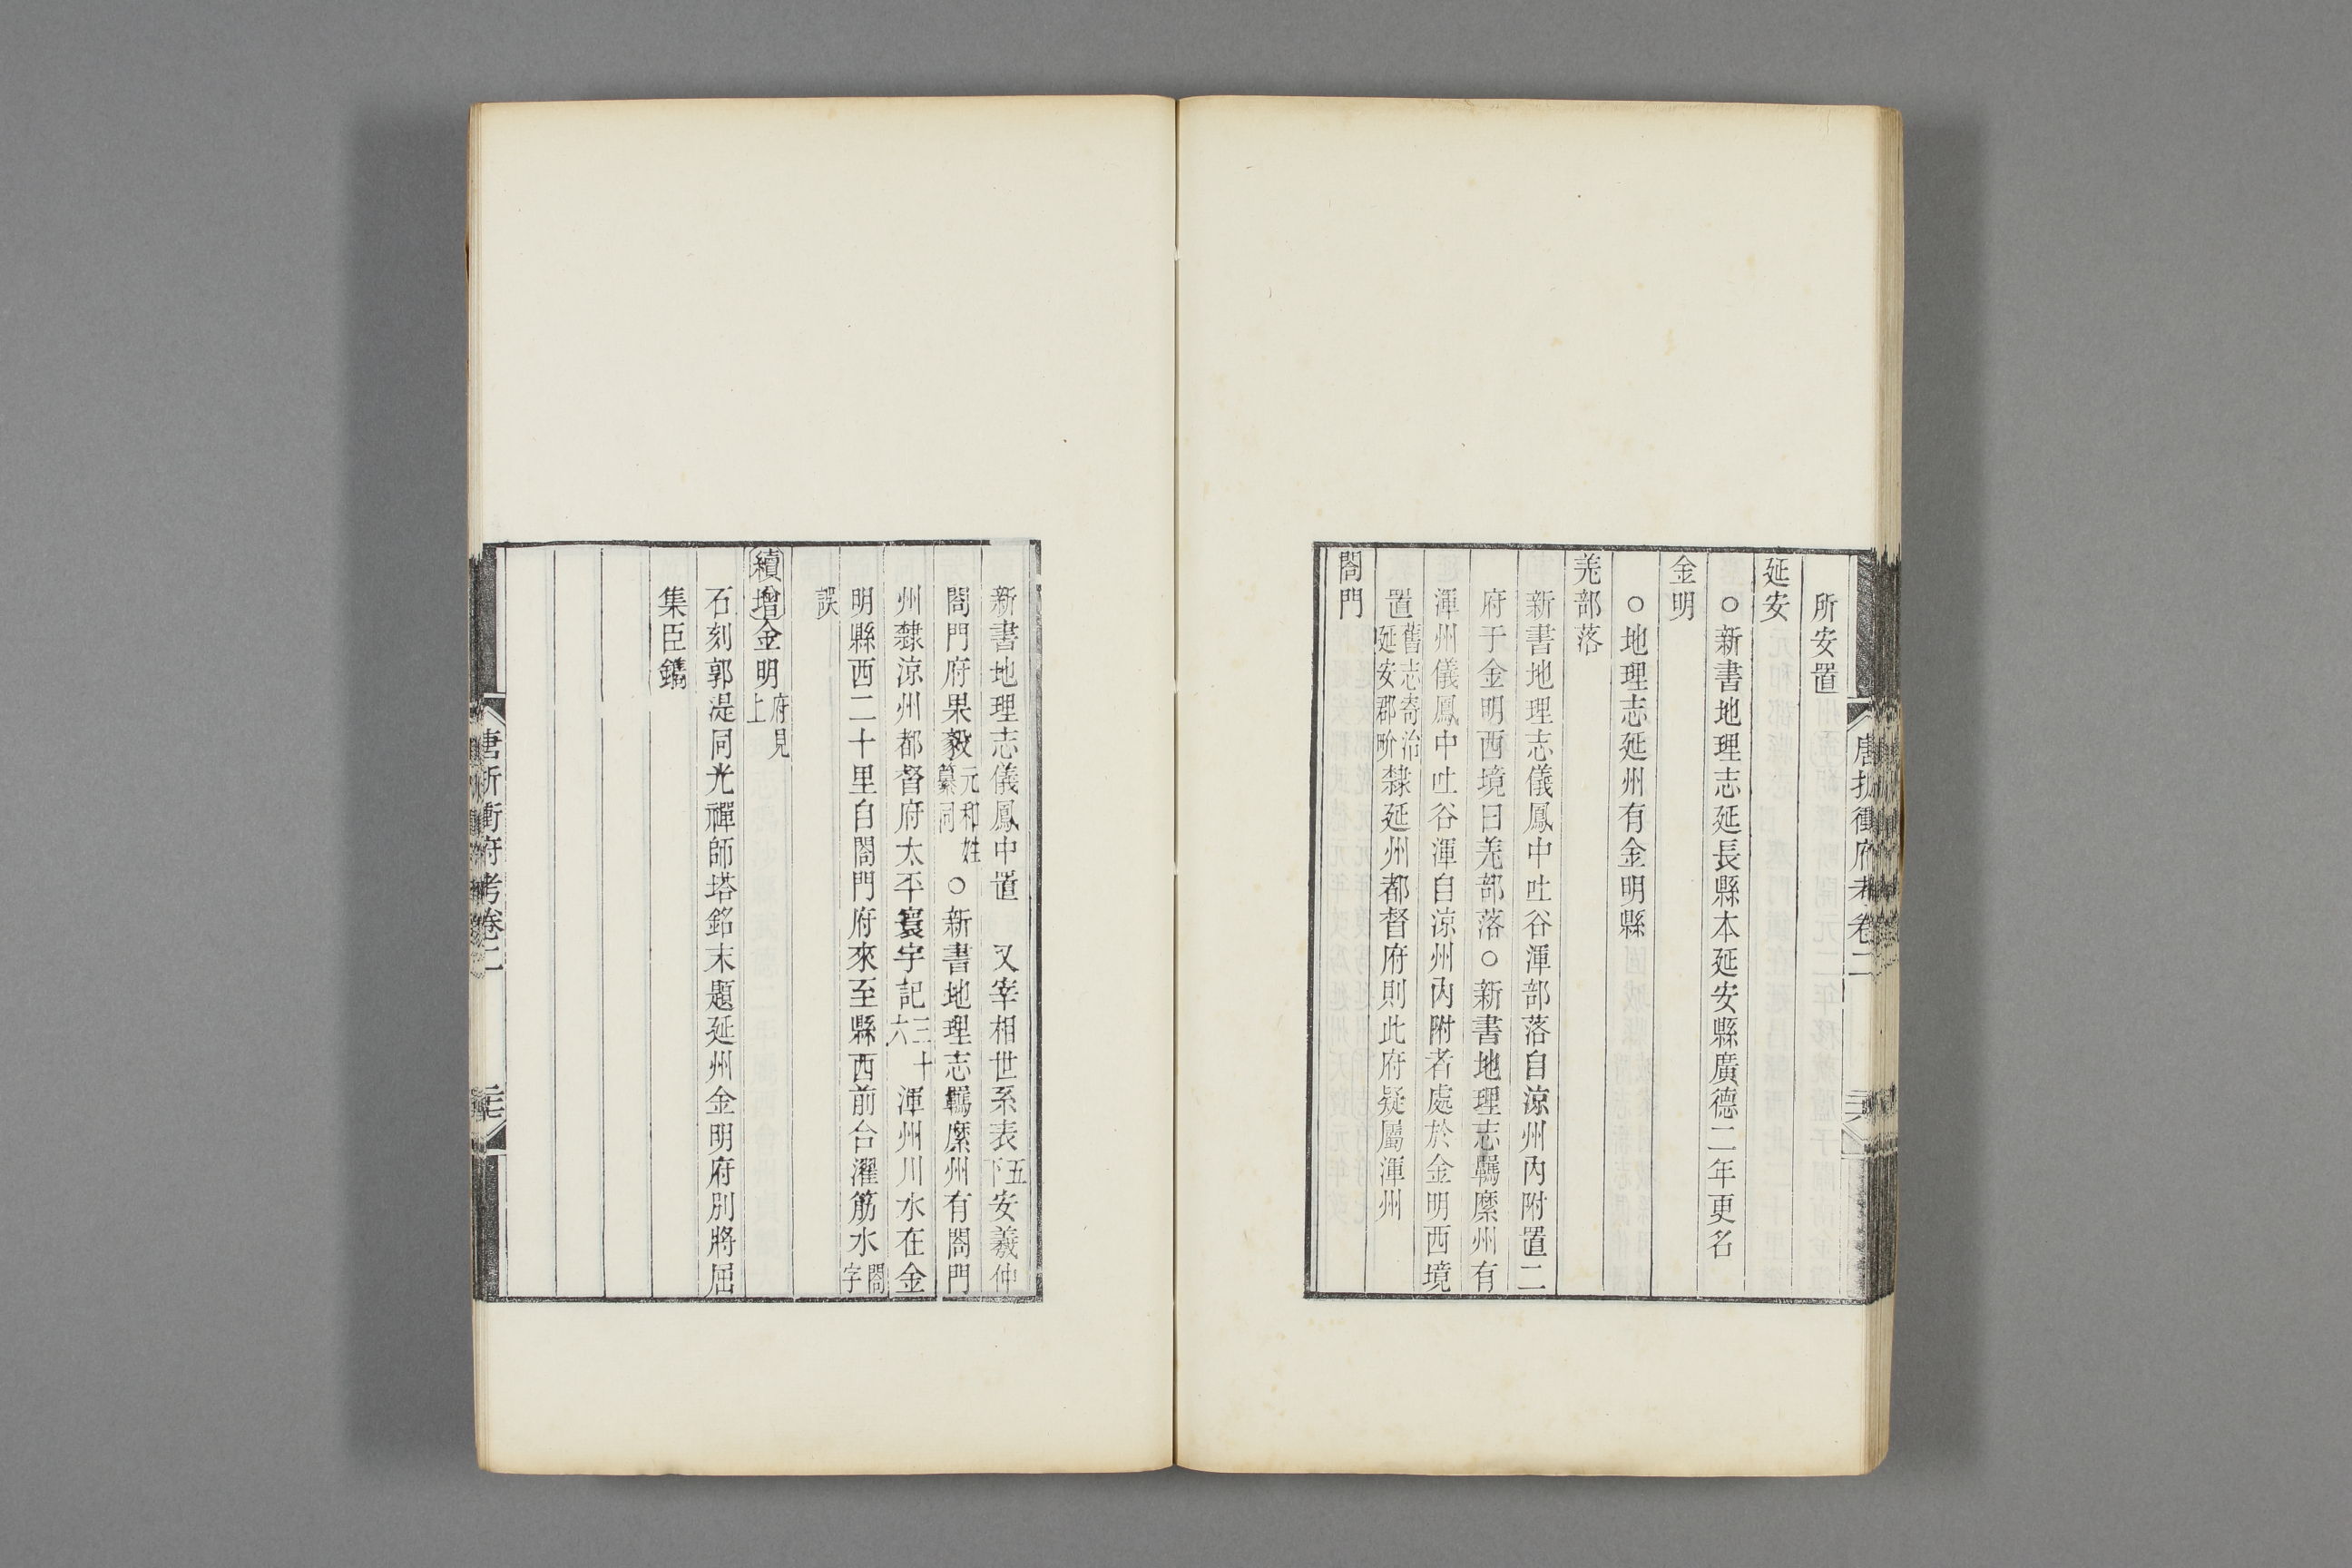 所安置
延安
○新書地理志延長縣本延安縣廣德二年更名
金明
○地理志延州有金明縣
羌部落
新書地理志儀鳳中吐谷渾部落自涼州內附置二
府于金明西境曰羌部落○新書地理志羈縻州有
渾州儀鳳中吐谷渾自涼州內附者處於金明西境
置舊志寄治延安郡界隸延州都督府則此府疑屬渾州
閤門
唐折衝府考卷二
新書地理志儀鳳中置 又宰相世系表五下安羲仲
閤門府果毅元和姓纂同○新書地理志羈縻州有閤門
州隸涼州都督府太平寰宇記三十六渾州川水在金
明縣西二十里自閤門府來至縣西前合濯筋水閤字
誤
續增金明府見上
石刻郭湜同光禪師塔銘末題延州金明府別將屈
集臣鐫
唐折衝府考卷二